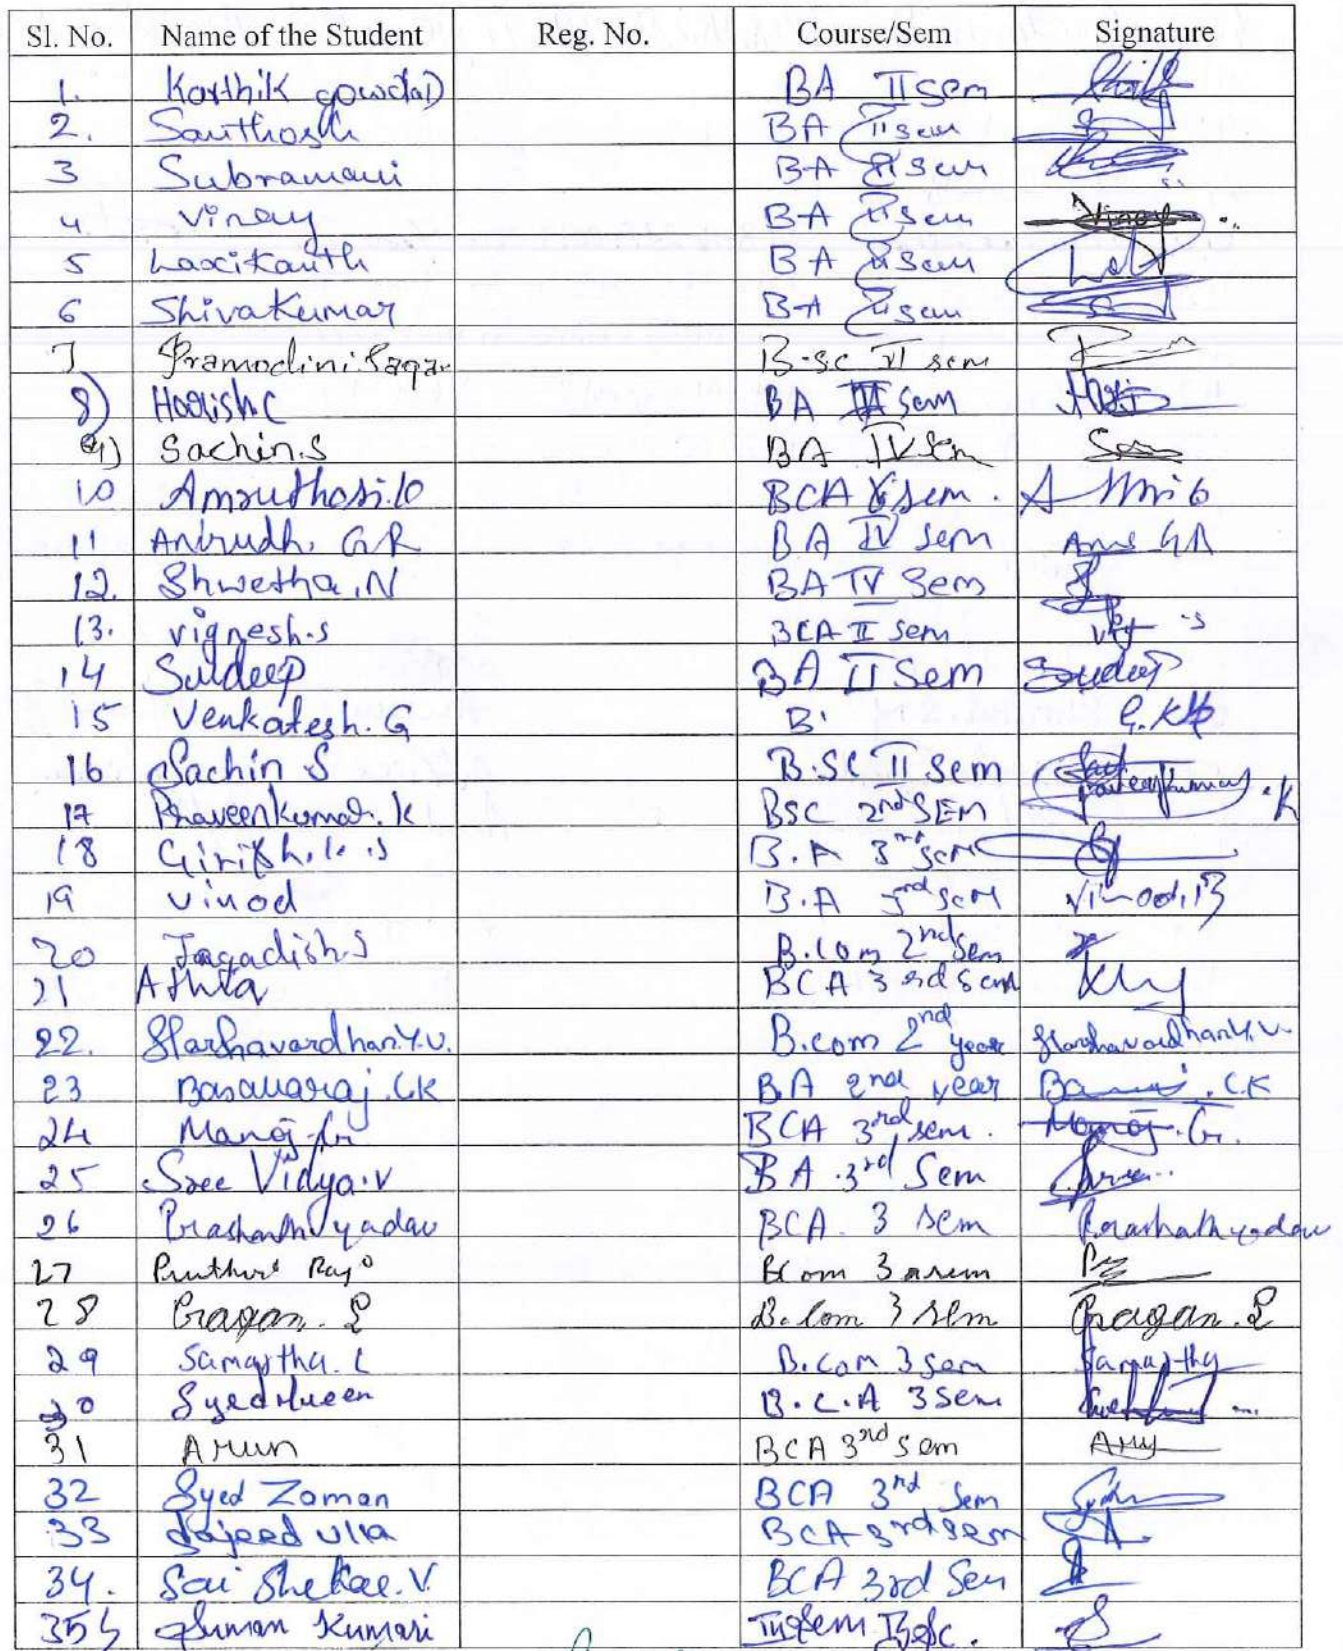 Sl. No. Name of the Student Reg. No. Course/Sem Signature
1. Karthik gowda D BA II Sem
2. Santhosh BA II sem
3 Subramani BA II Sem
4 Vinay BA II Sem Vinay
5 Laxikanth BA II Sem
6 ShivaKumar BA II Sem
7 Pramodini. Sagar B.sc VI sem
8) Harish C BA III Sem
9) Sachin.S BA IV Sem
10 BCA sem.
11 Anirudh. G R BA IV Sem
12. Shwetha.N BA IV Sem
13. Vignesh.s BCA II sem
14 Suldeep BA II Sem
15 Venkatesh. G B.
16 Sachin S B.SC II Sem
17 Praveenkumar. K BSC 2nd SEM Praveenkumar.K
18 Girish.k.s B.A 3rd sem
19 Vinod B.A 3rd sem Vinod.B
20 Jagadish.S B.Com 2nd Sem
21 BCA 3rd sem
22. Harshavardhan.Y.V. B.com 2nd year Harshavardhan.Y.V.
23 Basavaraj.CK BA 2nd year .CK
24 Manoj. G BCA 3rd sem. Manoj. G.
25 Sree Vidya.V BA 3rd Sem
26 Prashanth yadav BCA. 3 sem Prashath yadav
27 Bcom 3 sem
28 Gagan. L B.Com 3 sem Gagan. L
29 Samartha. L B.Com 3 sem Samartha
30 Syed B.C.A 3 Sem
31 Arun BCA 3rd Sem
32 Syed Zaman BCA 3rd Sem
33 Sajeed Ulla BCA 3rd sem
34. Sai Shekar. V BCA 3rd Sem
35 Suman Kumari Sem